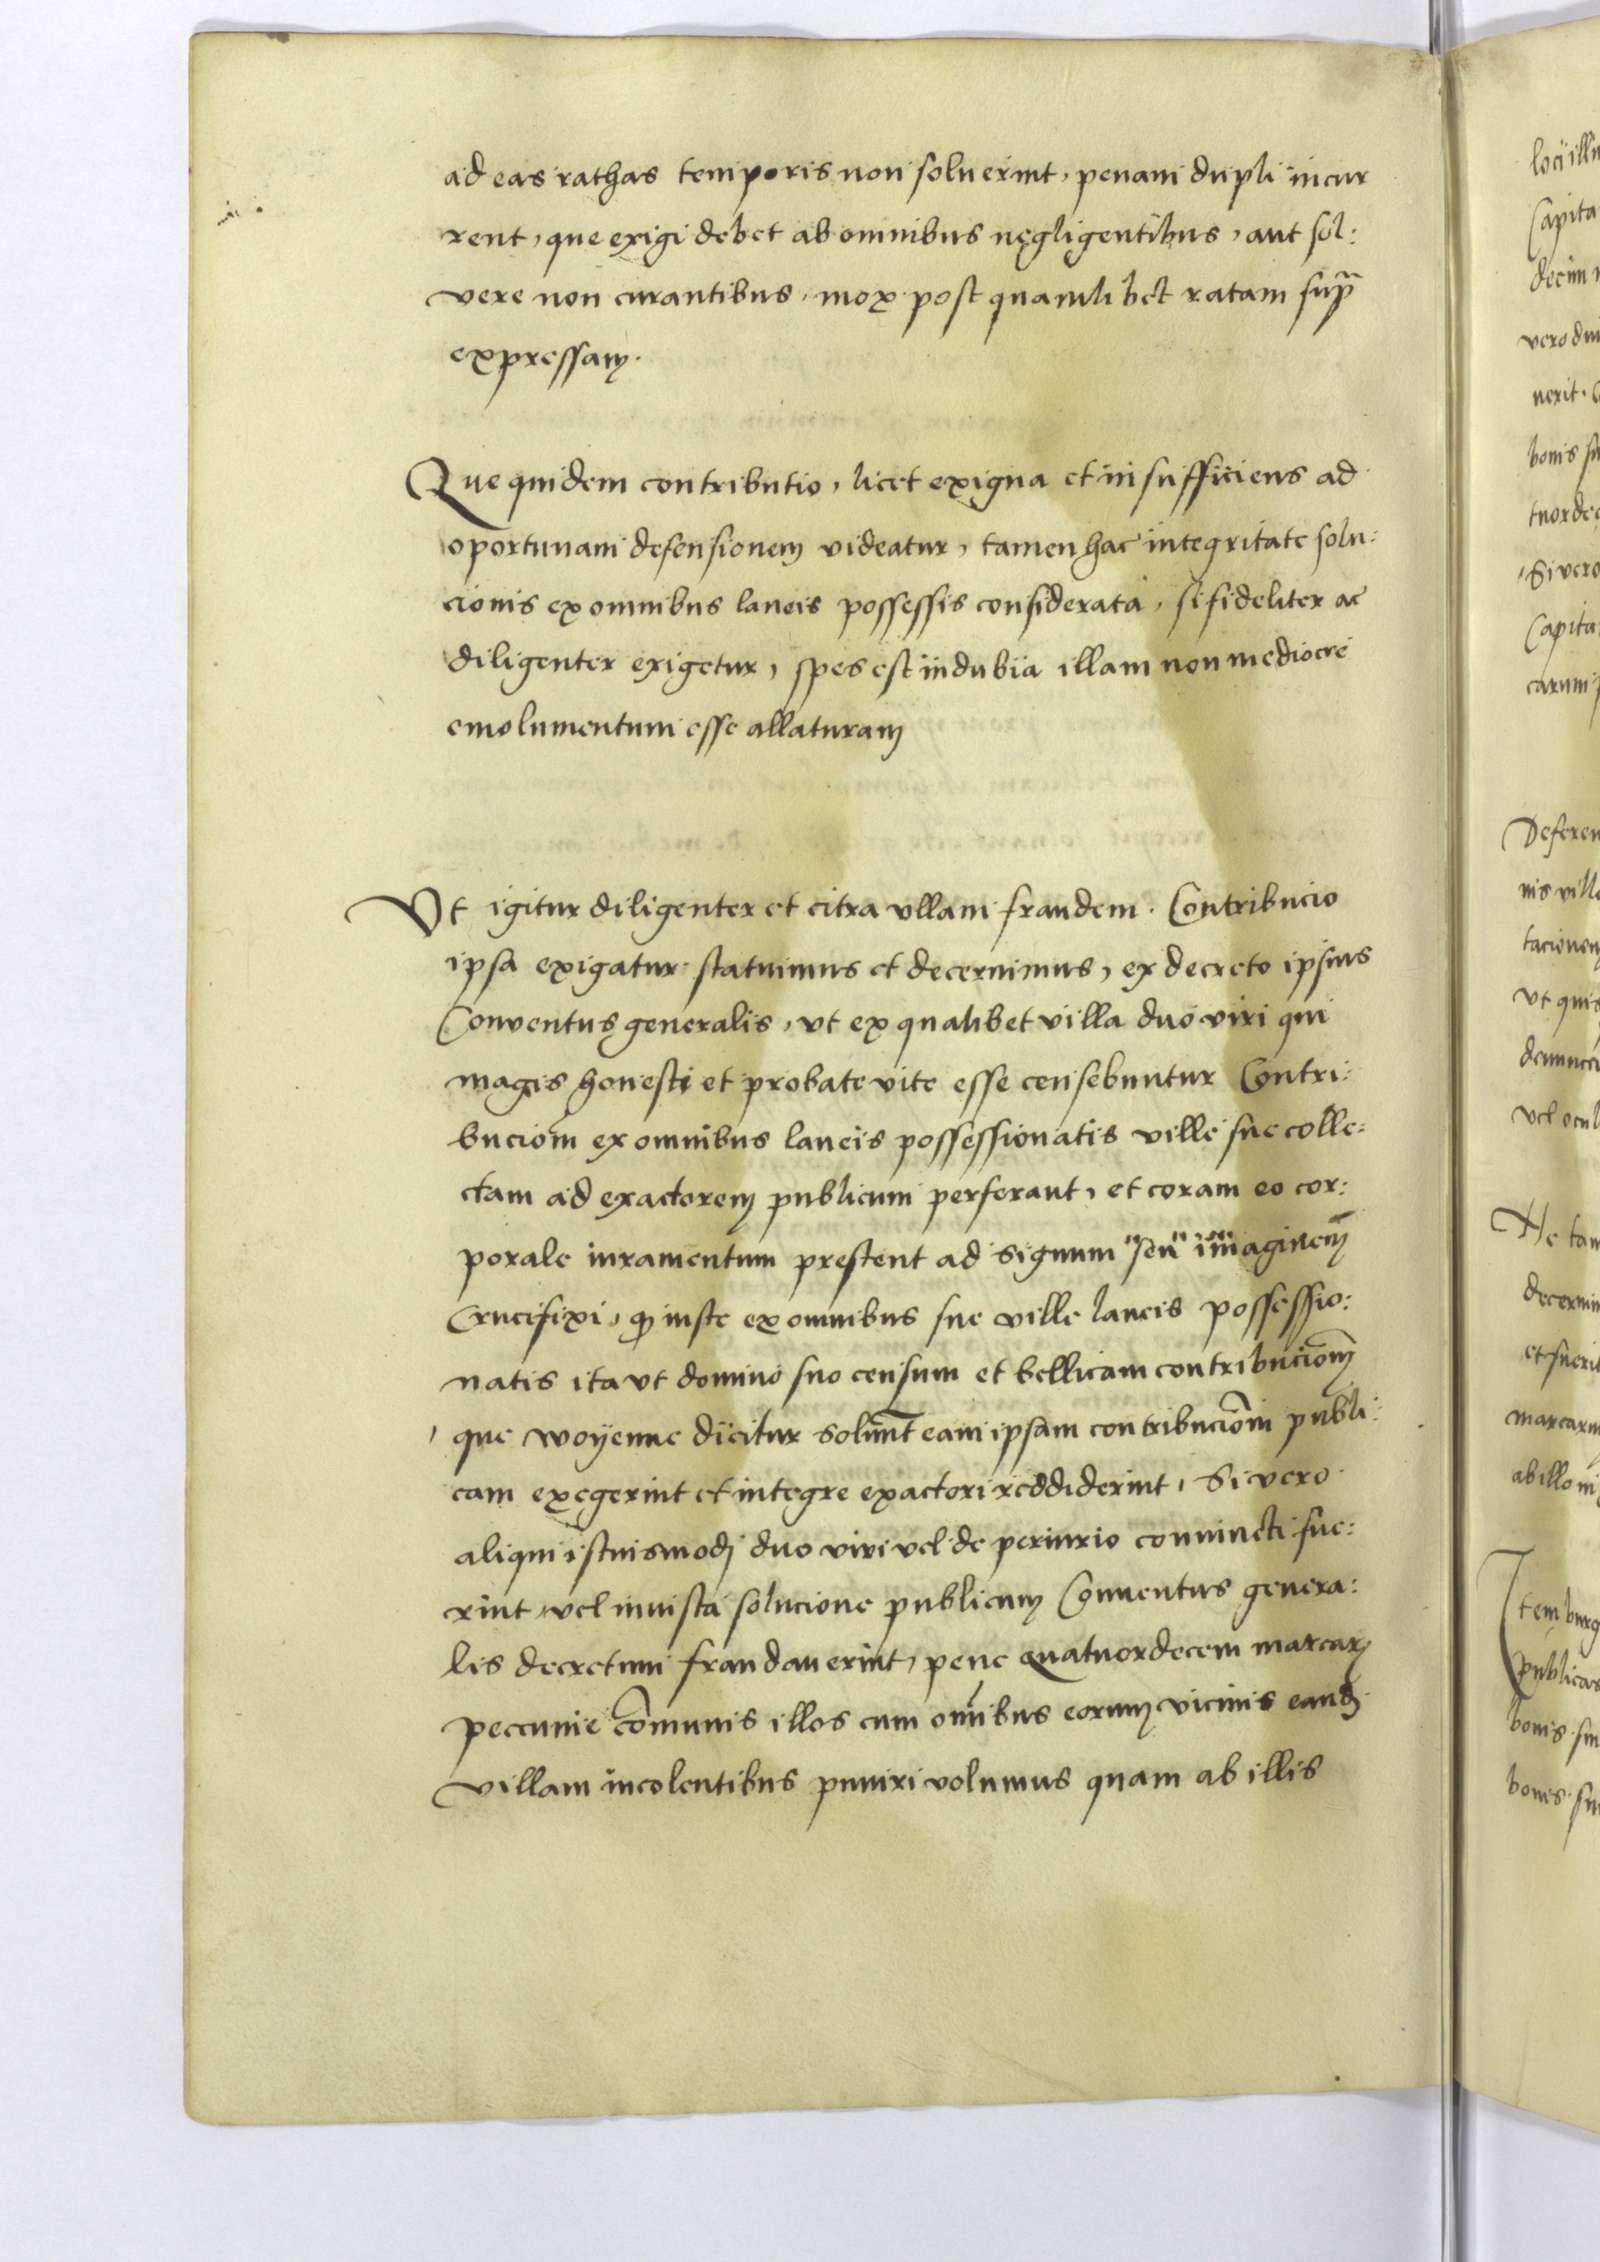 ad eas rathas temporis non soluerint, penam dupli incur
rent, que exigi debet ab omnibus nęgligentibus, aut sol:
vere non curantibus, mox post quamlibet ratam supra
expressam.
Que quidem contributio, licet exigua et insufficiens ad
oportunam defensionem videatur, tamen hac integritate solu:
cionis ex omnibus laneis possessis considerata, si fideliter ac
diligenter exigetur, spes est indubia illam non mediocre
emolumentum esse allaturam
Vt igitur diligenter et citra vllam fraudem. Contribucio
ipsa exigatur statuimus et decernimus, ex decreto ipsius
Conventus generalis, vt ex qualibet villa duo viri qui
magis honesti et probate vite esse censebuntur Contri:
buciom̄ ex omnibus laneis possessionatis ville sue colle:
ctam ad exactorem publicum perferant, et coram eo cor:
porale iuramentum prestent ad signum "seu" imaginem
Crucifixi, ꝙ iuste ex omnibus sue ville laneis possessio:
natis ita vt domino suo censum et bellicam contribuciom̄
que woyenne dicitur solūnt eam ipsam contribuciom̄ publi:
cam exegerint et integre exactori reddiderint, Si vero
aliqui istuismodj duo viri vel de periurio conuincti fue:
rint, vel iniusta solucione publicum Conuentus genera:
lis decretum fraudauerint, pene quatuordecem marcarꝫ
peccunie cōmunis illos cum om̄ibus eorum vicinis eandꝫ
villam incolentibus puniri volumus quam ab illis